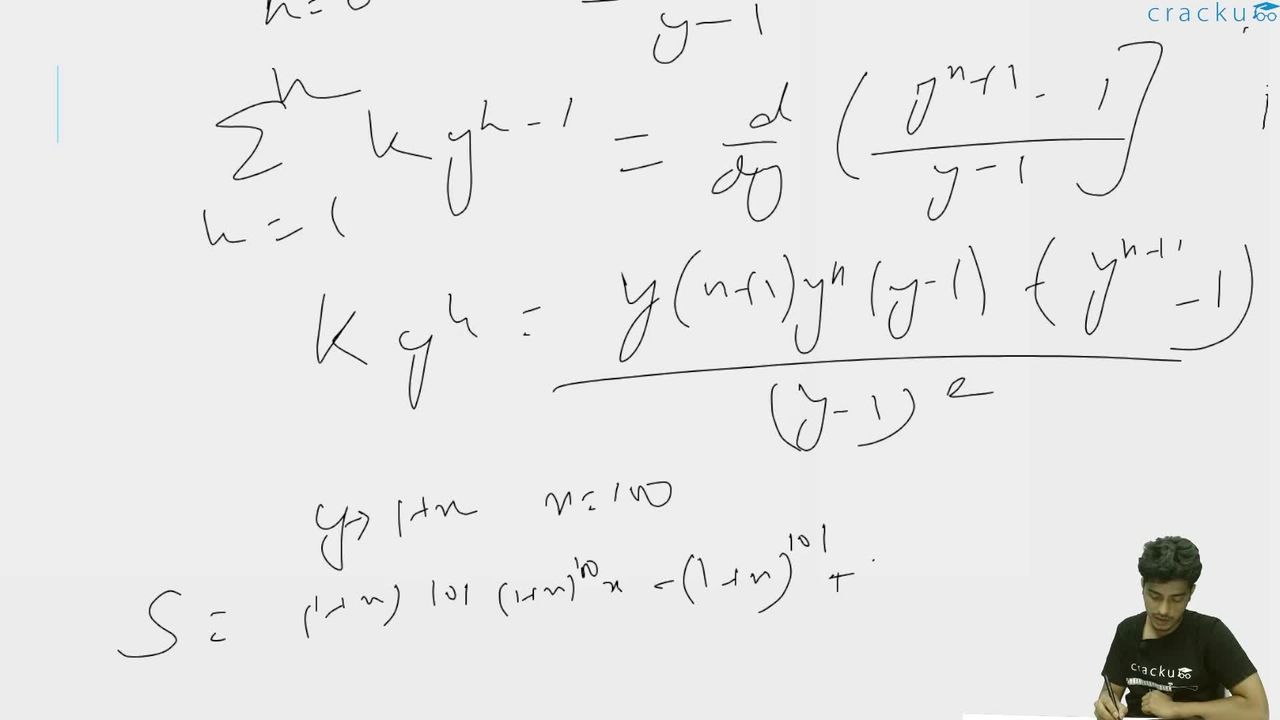 cracku
n=0
y-1
n
Σ k y^{k-1} = d/dy ( (y^{n+1} - 1)/(y-1) ]
k=1
k y^k = y(n+1)y^n (y-1) - (y^{n+1} - 1)
(y-1)^2
y→ 1+x n=100
S = (1+x) 101 (1+x)^{100} x - (1+x)^{101} +
cracku